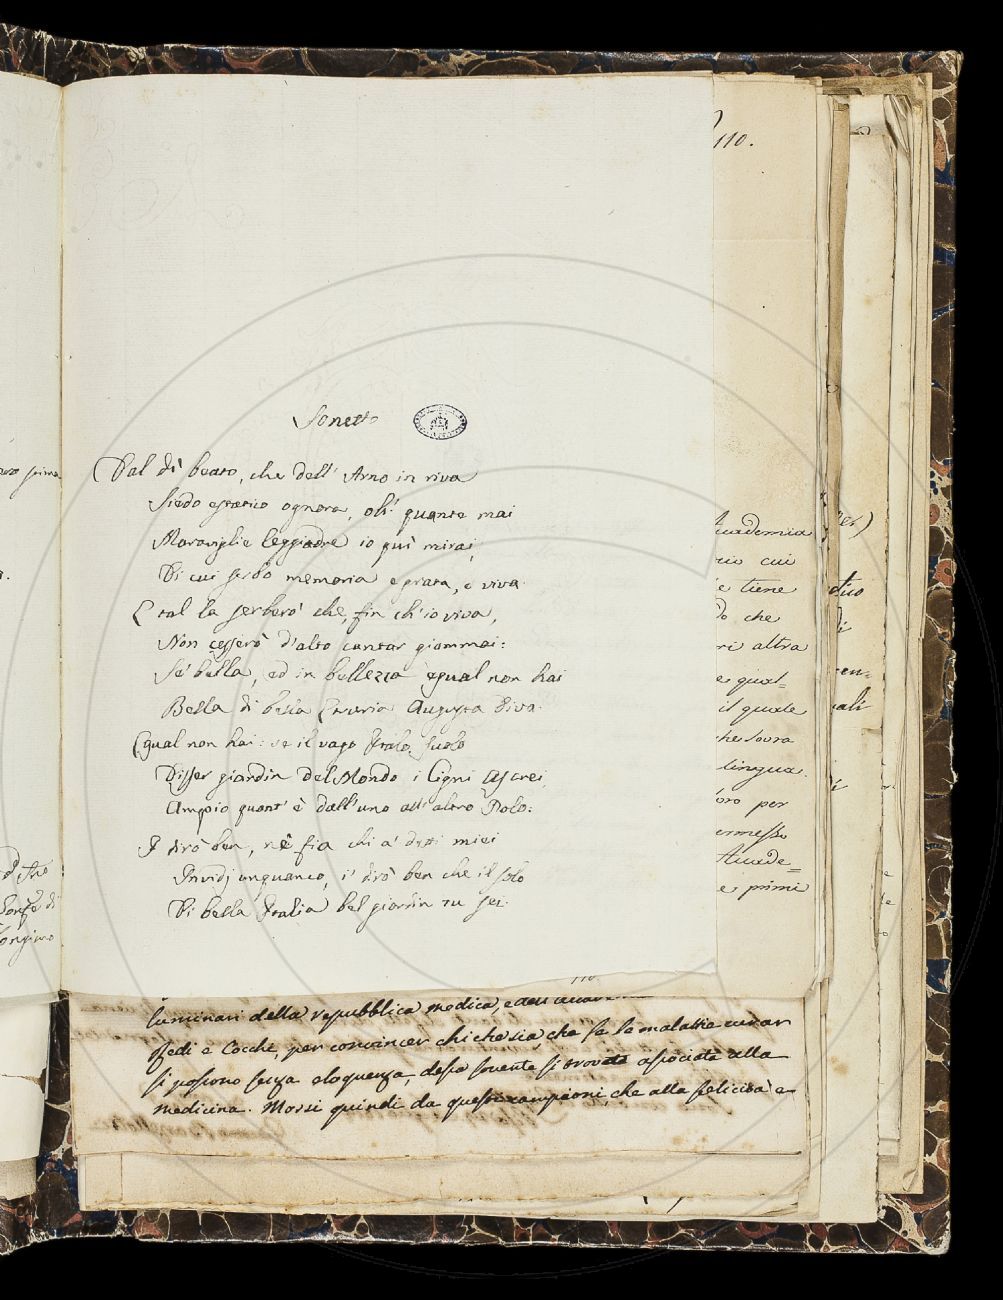 110.
Sonetto
Dal dì beato, che dell' Arno in riva
Siedo estatico ognora, oh' quante mai
Maraviglie leggiadre io quì mirai,
Di cui serbo memoria e grata, e viva.
E tal la serberò che, fin ch'io viva,
Non cesserò d'alto cantar giammai:
Sè bella, ed in bellezza egual non hai
Bella di bella Etruria Augusta Diva.
Egual non hai: se il vago Italo Suolo
Disser giardin del Mondo i Cigni Ascrei,
Ampio quant' è dall'uno all'altro Polo:
I dirò ben, nè fia chi a' detti miei
Invidj unquanco, i' dirò ben che il solo
Di bella Italia bel giardin tu sei.
Accademia
cui
e tiene
che
altra
e qual-
il quale
che sovra
lingua.
per
Accade=
e primi
110
luminari della repubblica medica, e
Redi e Cocchi, per convincer chichesia, che se le malattie curar
si possono senza eloquenza, dessa sovente si trovata associata alla
medicina. Mossi quindi da questi campioni, che alla felicità e